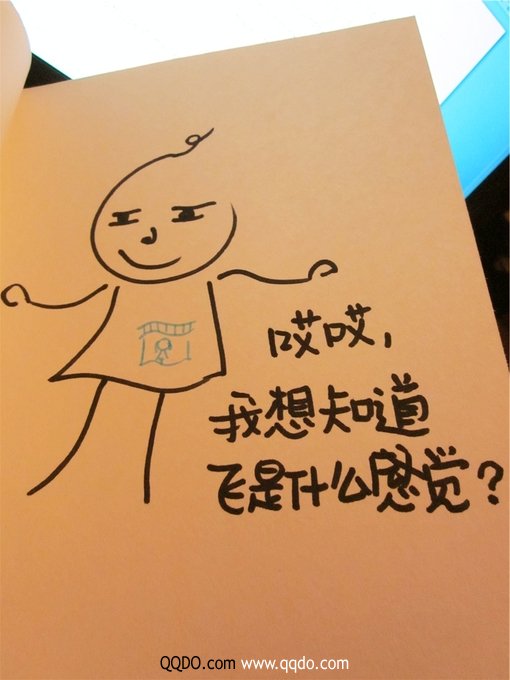 哎哎,
我想知道
飞是什么感觉?
QQDO.com www.qqdo.com